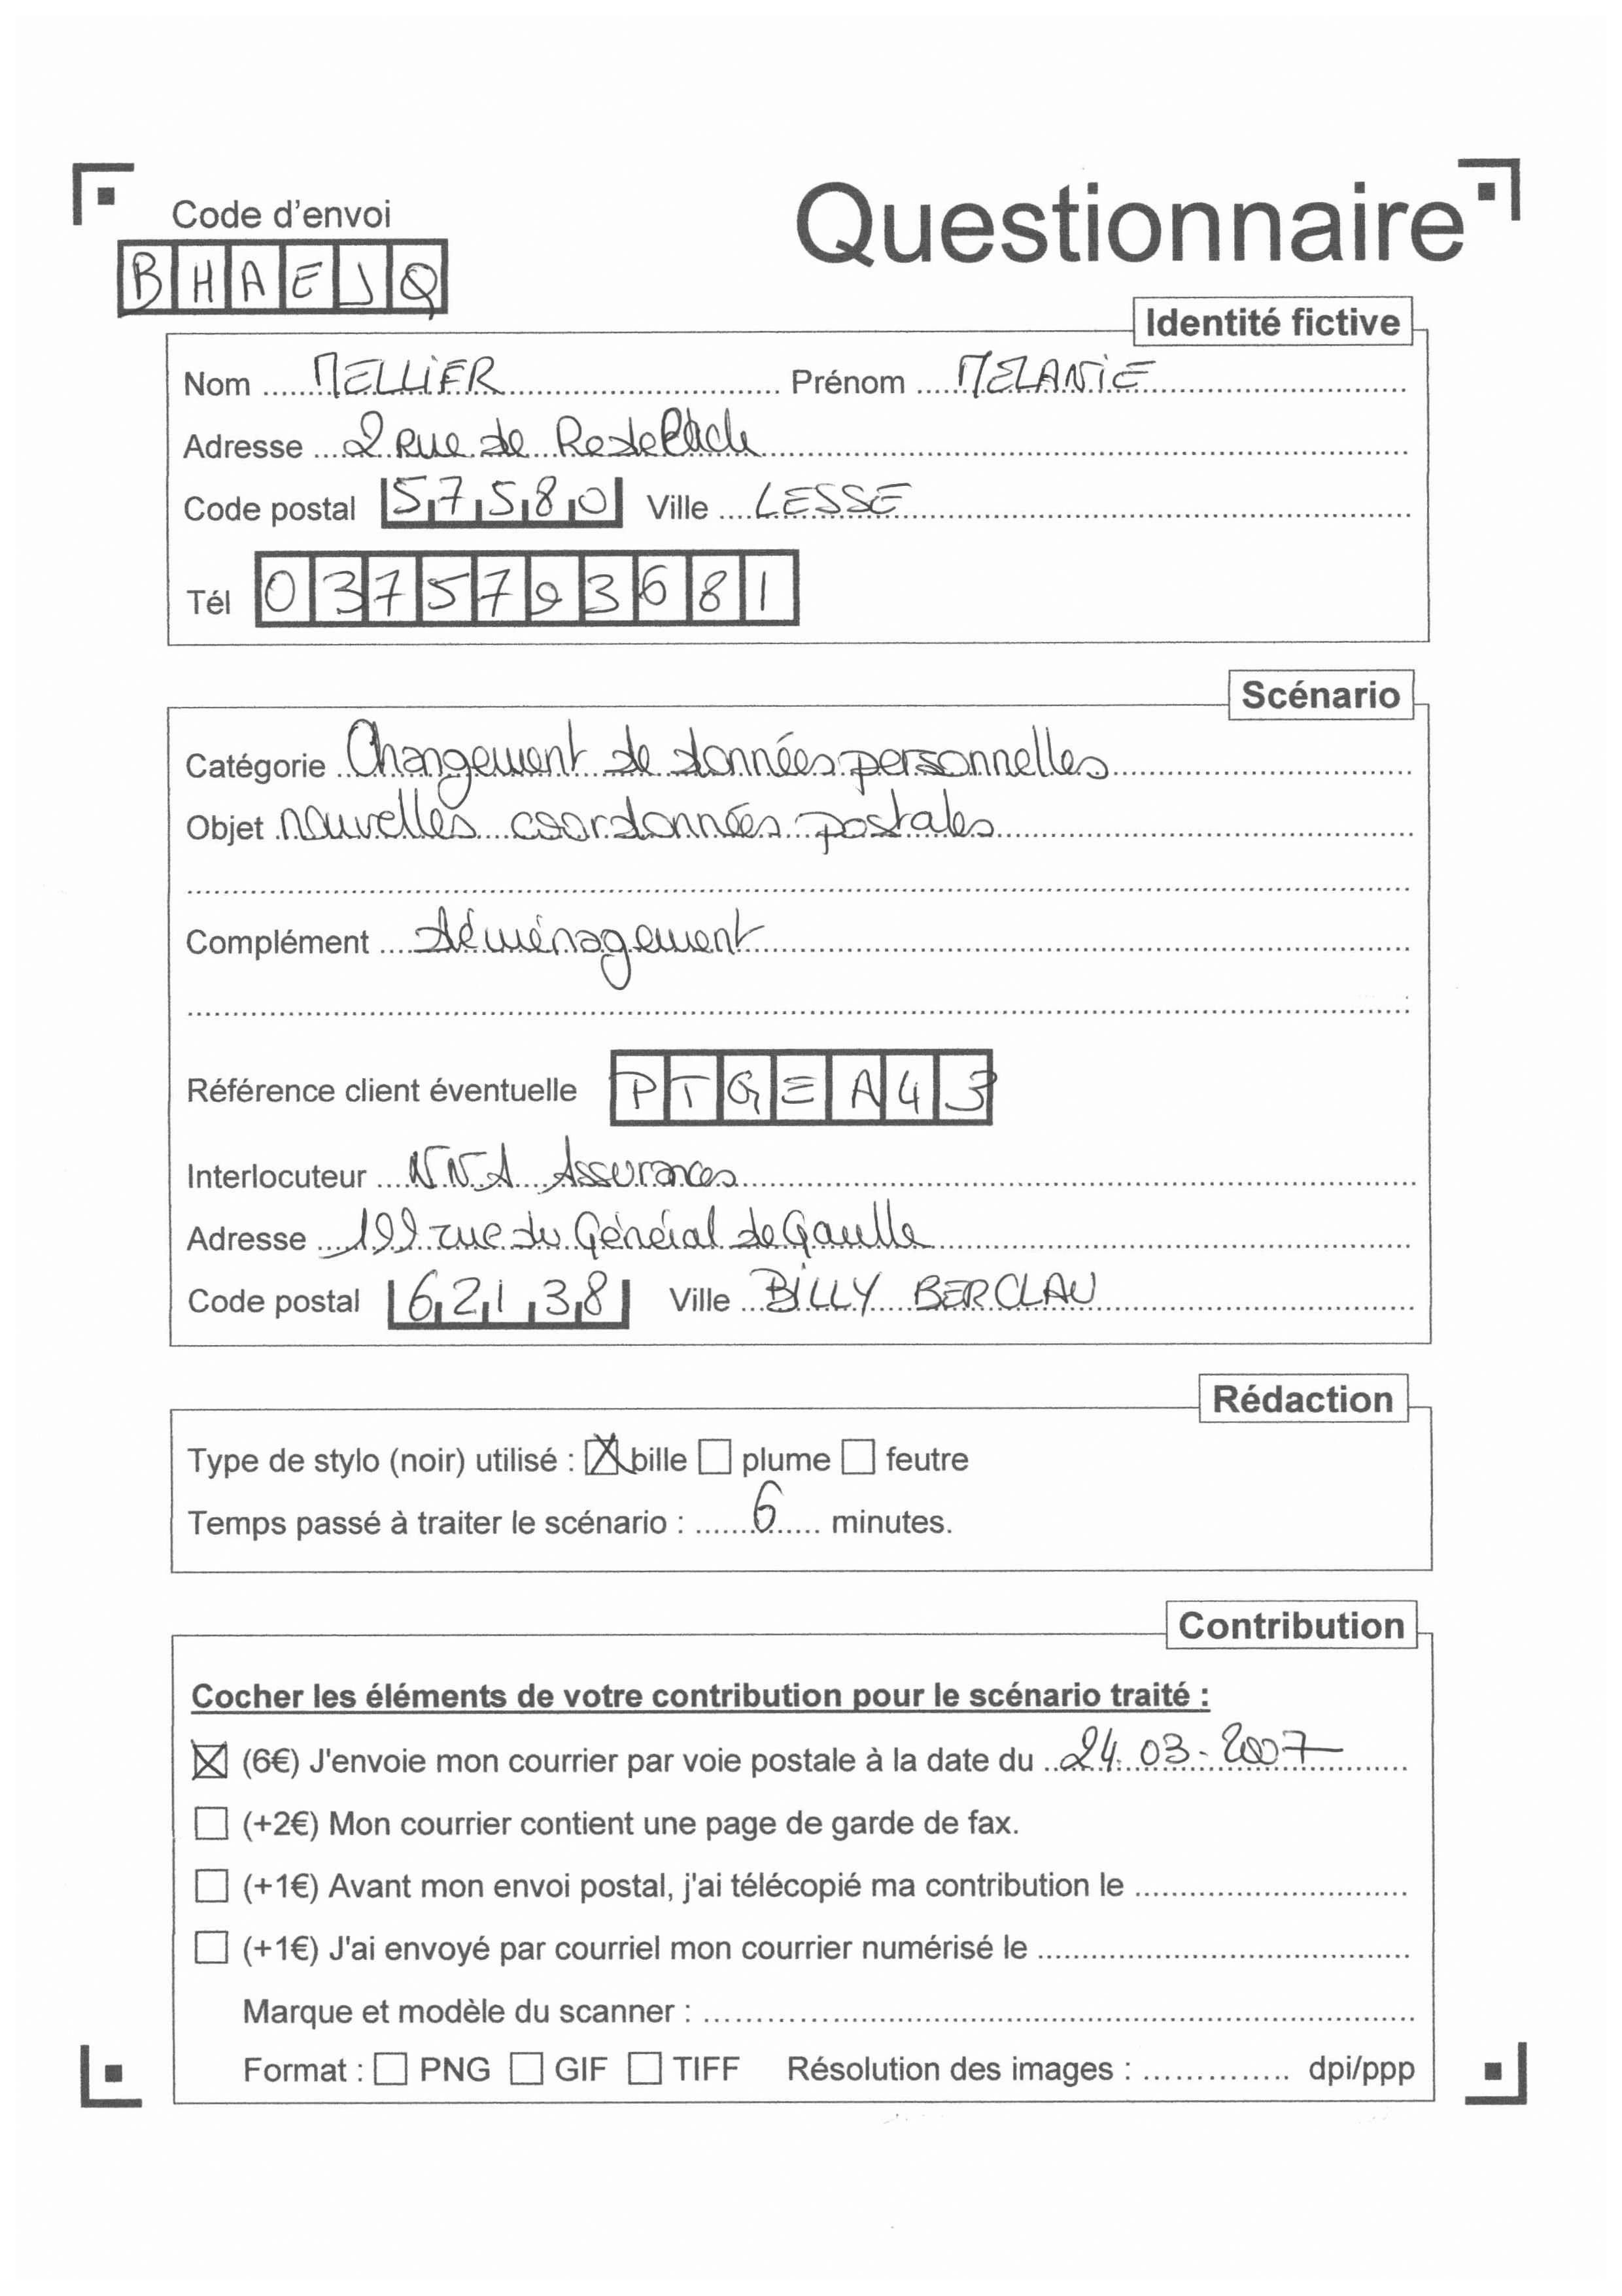 Code d'envoi
Questionnaire
BHAEJQ
Identité fictive
Nom MELLIER Prénom MELANIE
Adresse 2 Rue de
Code postal 57580 Ville LESSE
Tél 0375793681
Scénario
Catégorie Changement de données personnelles
Objet nouvelles coordonnées postales
Complément déménagement
Référence client éventuelle PTGEA43
Interlocuteur NNA Assurances
Adresse 199 rue du Général de Gaulle
Code postal 62138 Ville BILLY BERCLAU
Rédaction
Type de stylo (noir) utilisé : bille plume feutre
Temps passé à traiter le scénario : 6 minutes.
Contribution
Cocher les éléments de votre contribution pour le scénario traité :
(6€) J'envoie mon courrier par voie postale à la date du 24.03-2007
(+2€) Mon courrier contient une page de garde de fax.
(+1€) Avant mon envoi postal, j'ai télécopié ma contribution le
(+1€) J'ai envoyé par courriel mon courrier numérisé le
Marque et modèle du scanner :
Format : PNG GIF TIFF Résolution des images : dpi/ppp